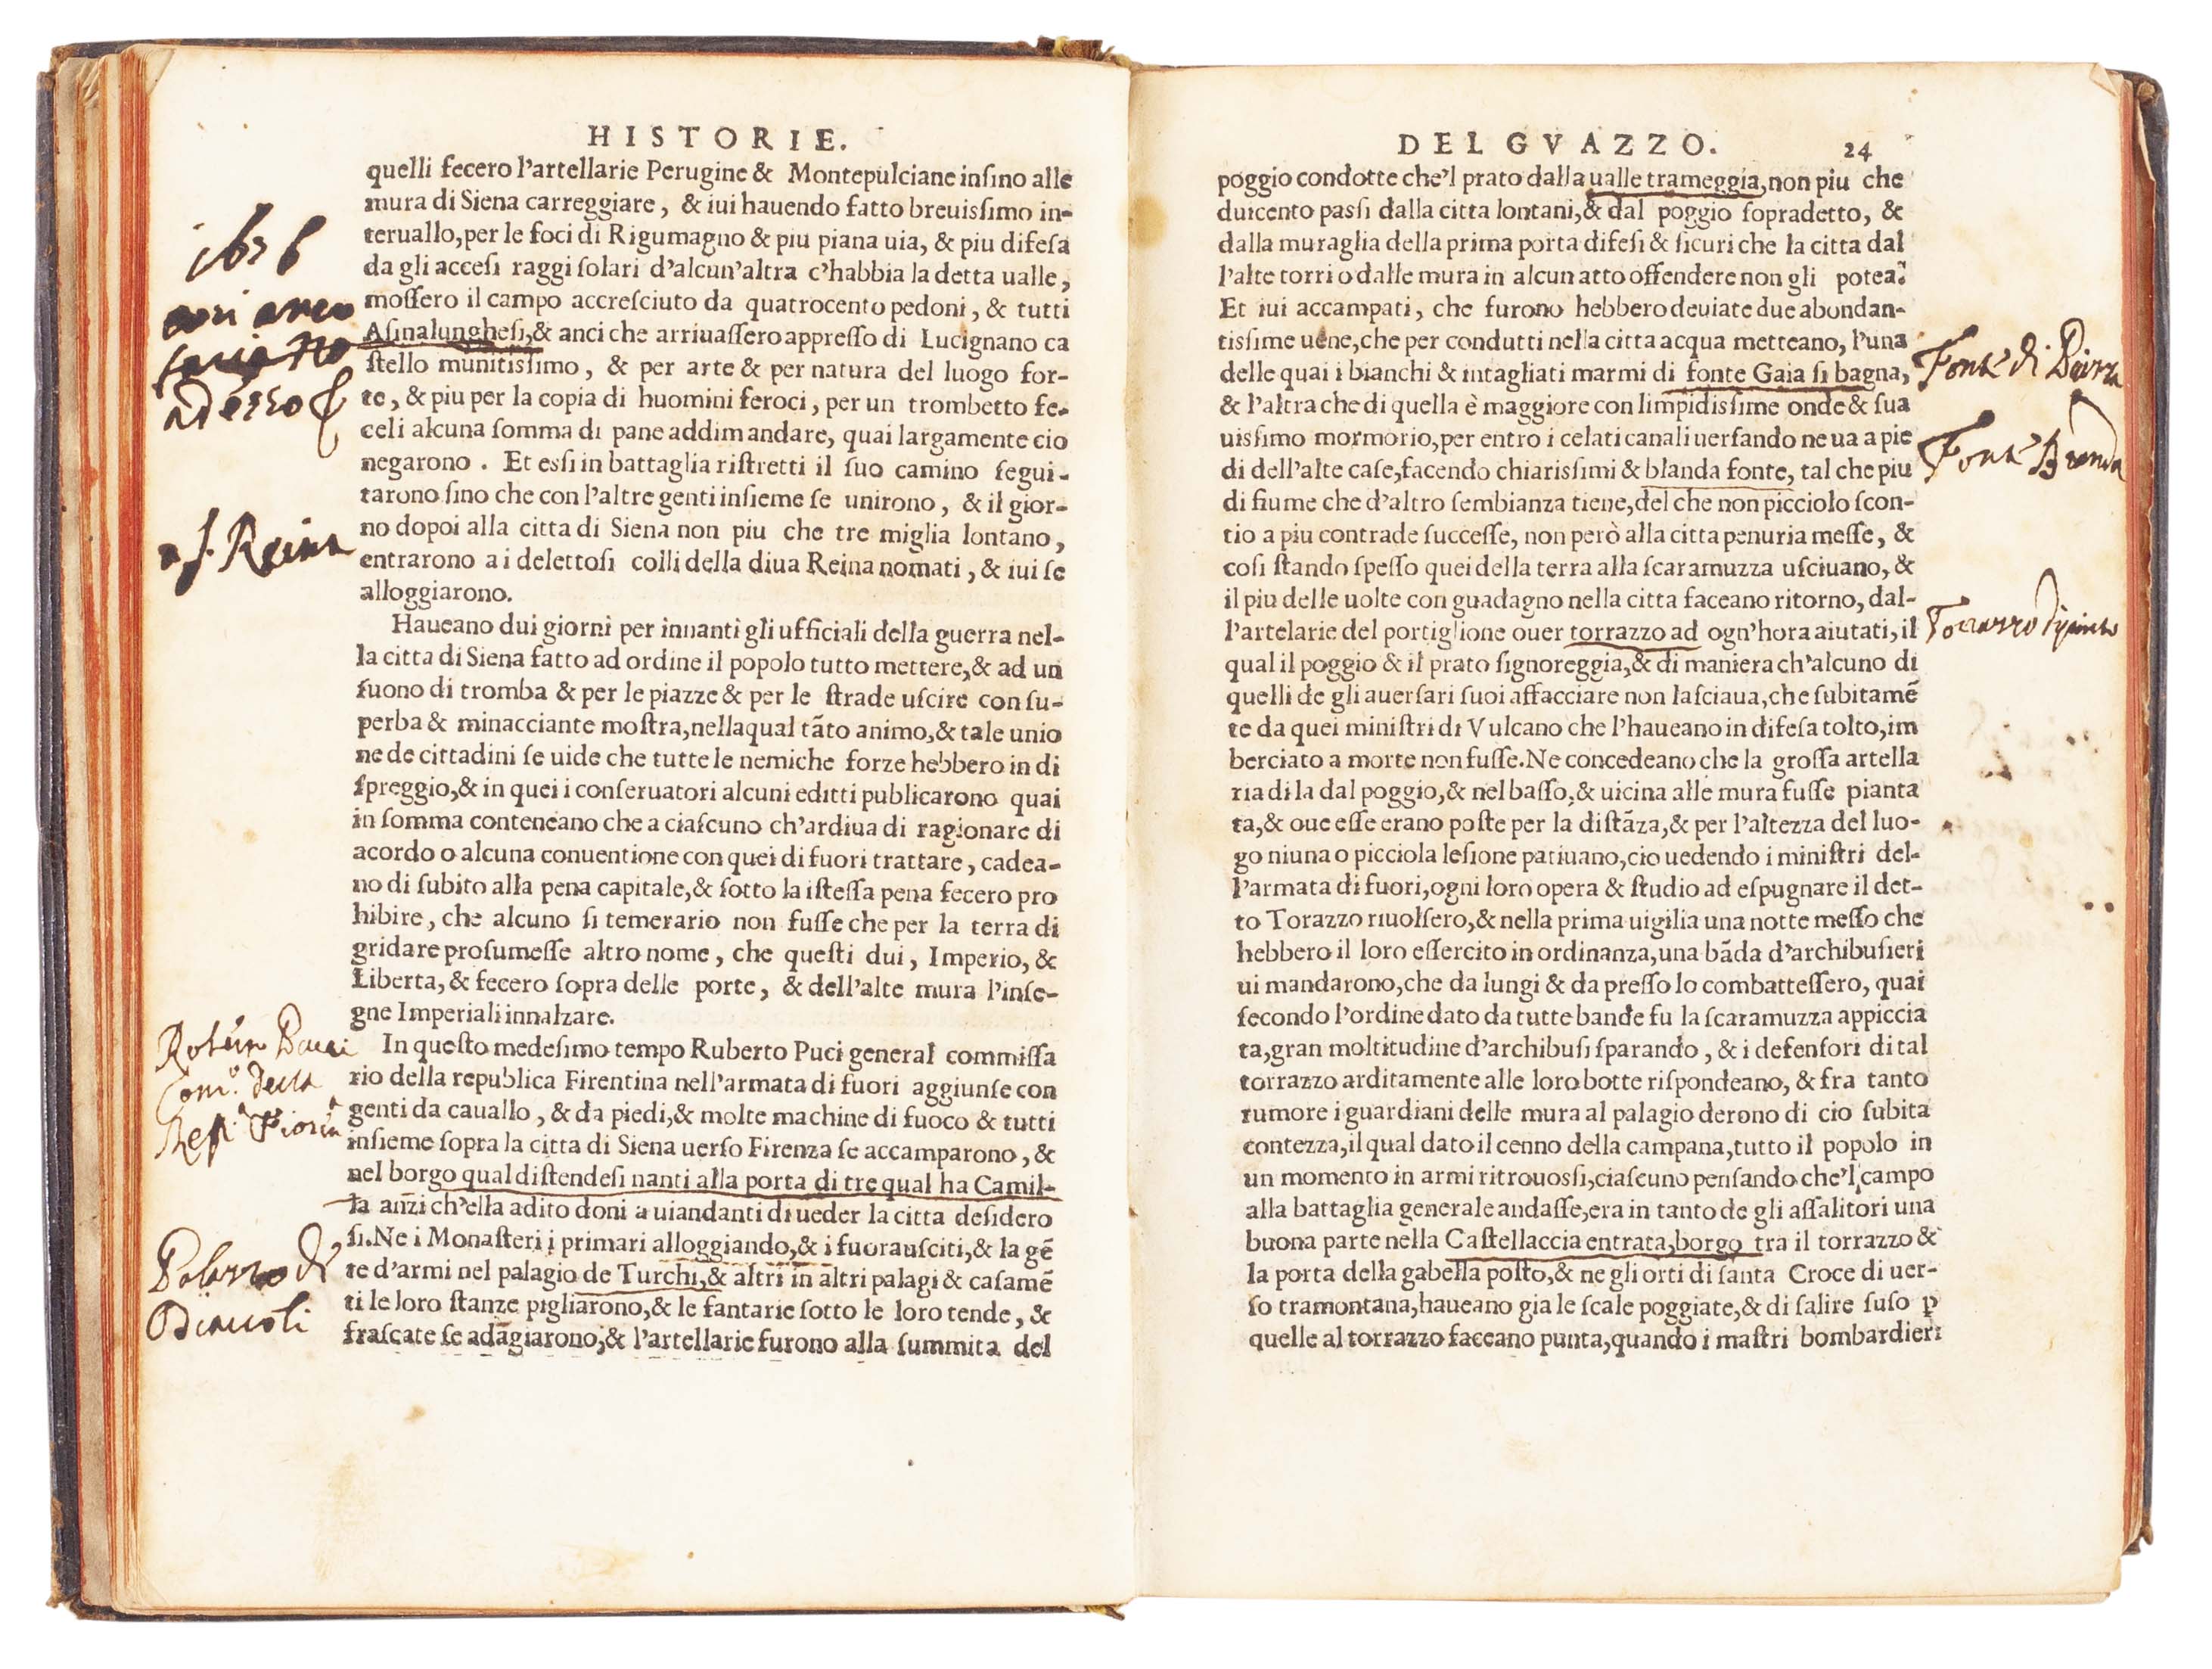 HISTORIE.
quelli fecero l'artellarie Perugine & Montepulciane insino alle
mura di Siena carreggiare, & iui hauendo fatto breuissimo in-
teruallo,per le foci di Rigumagno & piu piana uia, & piu difesa
da gli accesi raggi solari d'alcun'altra c'habbia la detta ualle,
mossero il campo accresciuto da quatrocento pedoni, & tutti
Asinalunghesi,& anci che arriuassero appresso di Lucignano ca
stello munitissimo, & per arte & per natura del luogo for-
te, & piu per la copia di huomini feroci, per un trombetto fe-
celi alcuna somma di pane addimandare, quai largamente cio
negarono. Et essi in battaglia ristretti il suo camino segui-
tarono sino che con l'altre genti insieme se unirono, & il gior-
no dopoi alla citta di Siena non piu che tre miglia lontano,
entrarono a i delettosi colli della diua Reina nomati, & iui se
alloggiarono.
Haueano dui giorni per innanti gli ufficiali della guerra nel-
la citta di Siena fatto ad ordine il popolo tutto mettere,& ad un
suono di tromba & per le piazze & per le strade uscire con su-
perba & minacciante mostra,nellaqual tãto animo,& tale unio
ne de cittadini se uide che tutte le nemiche forze hebbero in di
spreggio,& in quei i conseruatori alcuni editti publicarono quai
in somma conteneano che a ciascuno ch'ardiua di ragionare di
acordo o alcuna conuentione con quei di fuori trattare, cadea-
no di subito alla pena capitale,& sotto la istessa pena fecero pro
hibire, che alcuno si temerario non fusse che per la terra di
gridare prosumesse altro nome, che questi dui, Imperio, &
Liberta, & fecero sopra delle porte, & dell'alte mura l'inse-
gne Imperiali innalzare.
In questo medesimo tempo Ruberto Puci general commissa
rio della republica Firentina nell'armata di fuori aggiunse con
genti da cauallo, & da piedi,& molte machine di fuoco & tutti
insieme sopra la citta di Siena uerso Firenza se accamparono, &
nel borgo qual distendesi nanti alla porta di tre qual ha Camil-
la anzi ch'ella adito doni a uiandanti di ueder la citta desidero
si.Ne i Monasteri i primari alloggiando,& i fuorausciti,& la gẽ
te d'armi nel palagio de Turchi,& altri in altri palagi & casamẽ
ti le loro stanze pigliarono,& le fantarie sotto le loro tende, &
frascate se adagiarono;& l'artellarie furono alla summita del
adesso
Reina
Palazzo di
Diauoli
DEL GVAZZO. 24
poggio condotte che'l prato dalla ualle trameggia,non piu che
duicento passi dalla citta lontani,& dal poggio sopradetto, &
dalla muraglia della prima porta difesi & sicuri che la citta dal
l'alte torri o dalle mura in alcun atto offendere non gli potea.
Et iui accampati, che furono hebbero deuiate due abondan-
tissime uene,che per condutti nella citta acqua metteano, l'una
delle quai i bianchi & intagliati marmi di fonte Gaia si bagna,
& l'altra che di quella è maggiore con limpidissime onde & sua
uissimo mormorio,per entro i celati canali uersando ne ua a pie
di dell'alte case,facendo chiarissimi & blanda fonte, tal che piu
di fiume che d'altro sembianza tiene,del che non picciolo scon-
tio a piu contrade successe, non però alla citta penuria messe, &
cosi stando spesso quei della terra alla scaramuzza usciuano, &
il piu delle uolte con guadagno nella citta faceano ritorno, dal-
l'artelarie del portiglione ouer torrazzo ad ogn'hora aiutati, il
qual il poggio & il prato signoreggia,& di maniera ch'alcuno di
quelli de gli auersari suoi affacciare non lasciaua,che subitamẽ
te da quei ministri di Vulcano che l'haueano in difesa tolto,im
berciato a morte non fusse.Ne concedeano che la grossa artella
ria di la dal poggio,& nel basso,& uicina alle mura fusse pianta
ta,& oue esse erano poste per la distãza,& per l'altezza del luo-
go niuna o picciola lesione patiuano,cio uedendo i ministri del-
l'armata di fuori,ogni loro opera & studio ad espugnare il det-
to Torazzo riuolsero,& nella prima uigilia una notte messo che
hebbero il loro essercito in ordinanza,una bãda d'archibusieri
ui mandarono,che da lungi & da presso lo combattessero, quai
secondo l'ordine dato da tutte bande fu la scaramuzza appiccia
ta,gran moltitudine d'archibusi sparando, & i defensori di tal
torrazzo arditamente alle loro botte rispondeano, & fra tanto
rumore i guardiani delle mura al palagio derono di cio subita
contezza,il qual dato il cenno della campana,tutto il popolo in
un momento in armi ritrouossi,ciascuno pensando che'l campo
alla battaglia generale andasse,era in tanto de gli assalitori una
buona parte nella Castellaccia entrata,borgo tra il torrazzo &
la porta della gabella posto,& ne gli orti di santa Croce di uer-
so tramontana,haueano gia le scale poggiate,& di salire suso ꝑ
quelle al torrazzo faceano punta,quando i mastri bombardieri
Fonte di Piazza
Fonte Branda
Torrazzo dipinto